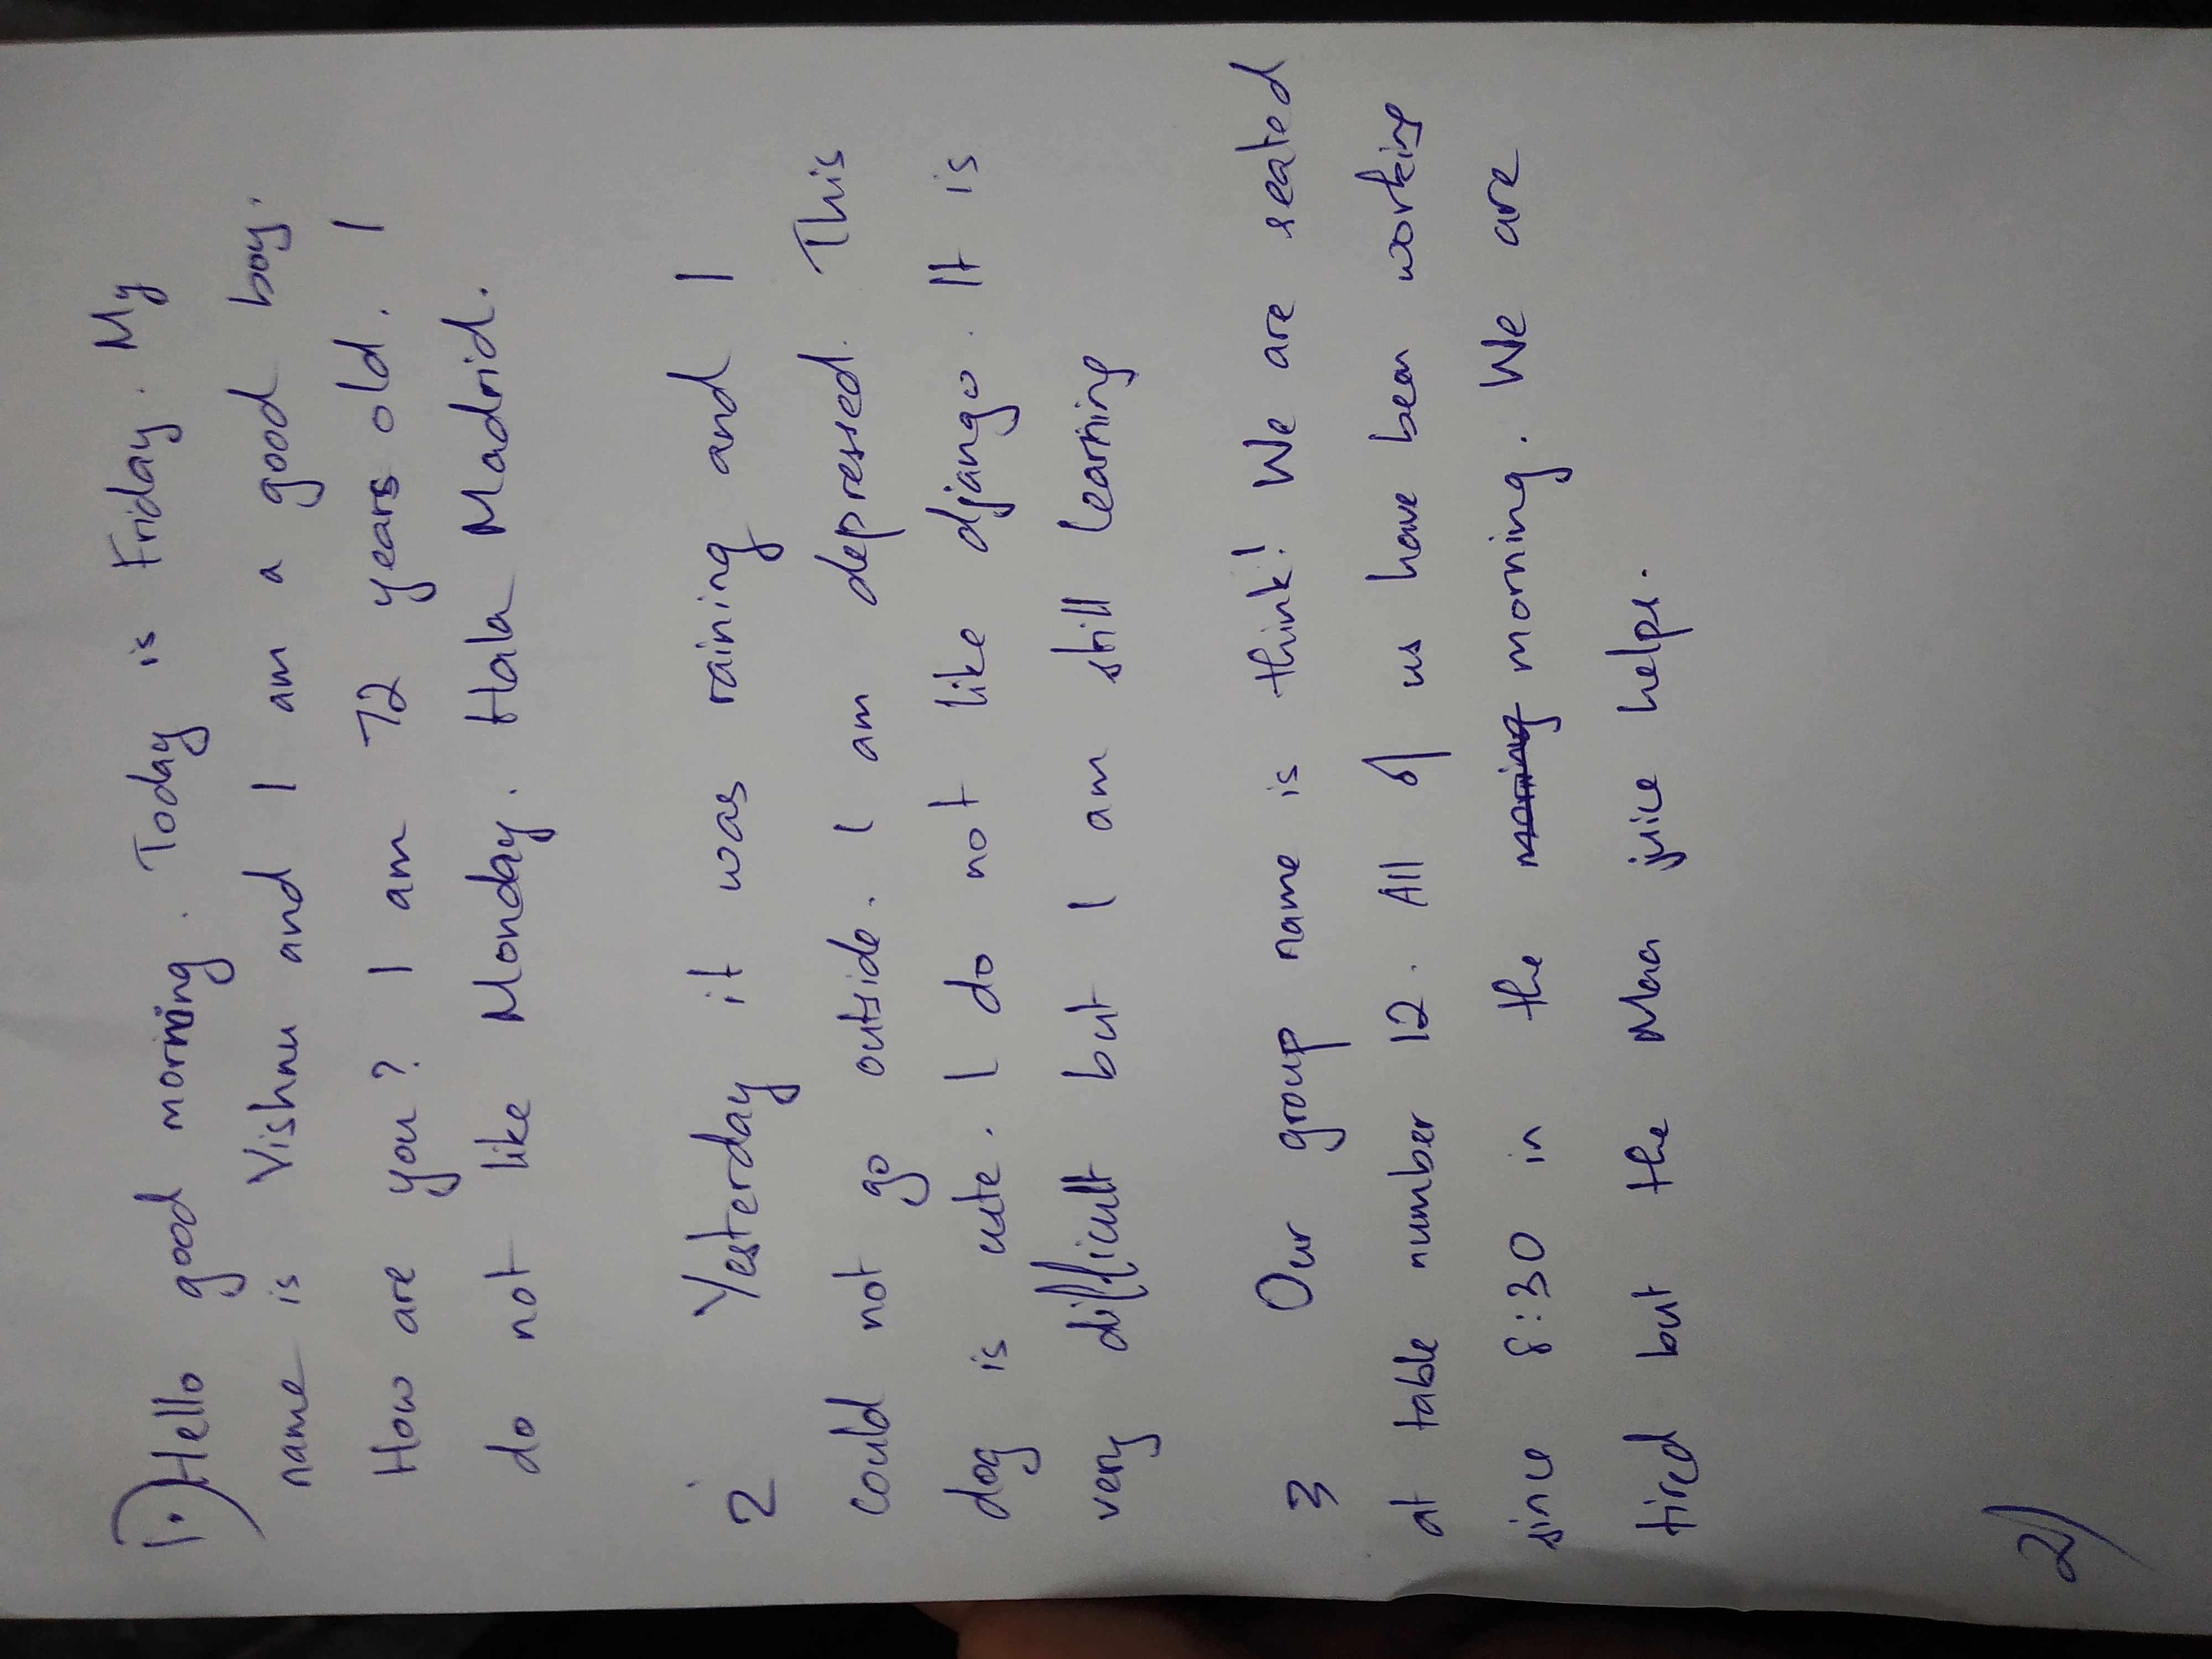 1.) Hello good morning. Today is Friday. My
name is Vishnu and I am a good boy.
How are you? I am 72 years old. I
do not like Monday. Hala Madrid.
2 Yesterday it was raining and I
could not go outside. I am depressed. This
dog is cute. I do not like django. It is
very difficult but I am still learning
3 Our group name is think! We are seated
at table number 12. All of us have been working
since 8:30 in the morning. We are
tired but the Maa juice helps.
2)